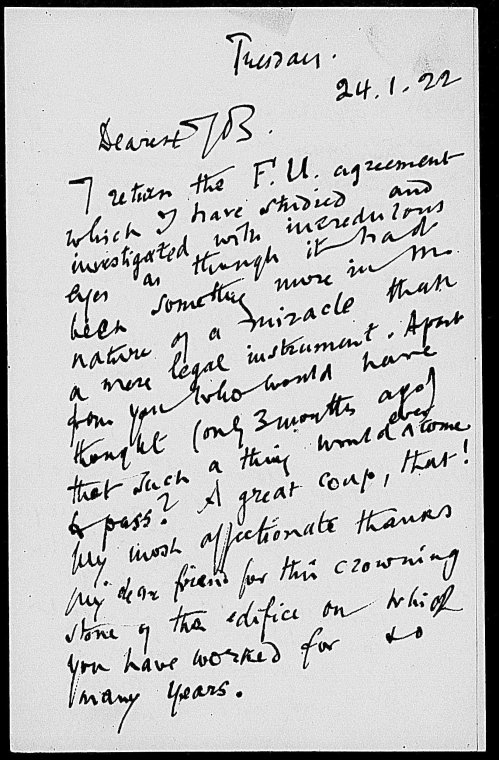 Tuesday.
24.1.22
Dearest JB.
I return the F.U. agreement
which I have studied and
investigated with incredulous
eyes as though it had
been something more in the
nature of a miracle than
a mere legal instrument. Apart
from you who would have
thought (only 3 months ago)
that such a thing would ever come
to pass? A great coup, that!
My most affectionate thanks
my dear friend for this crowning
stone of the edifice on which
you have worked for so
many years.